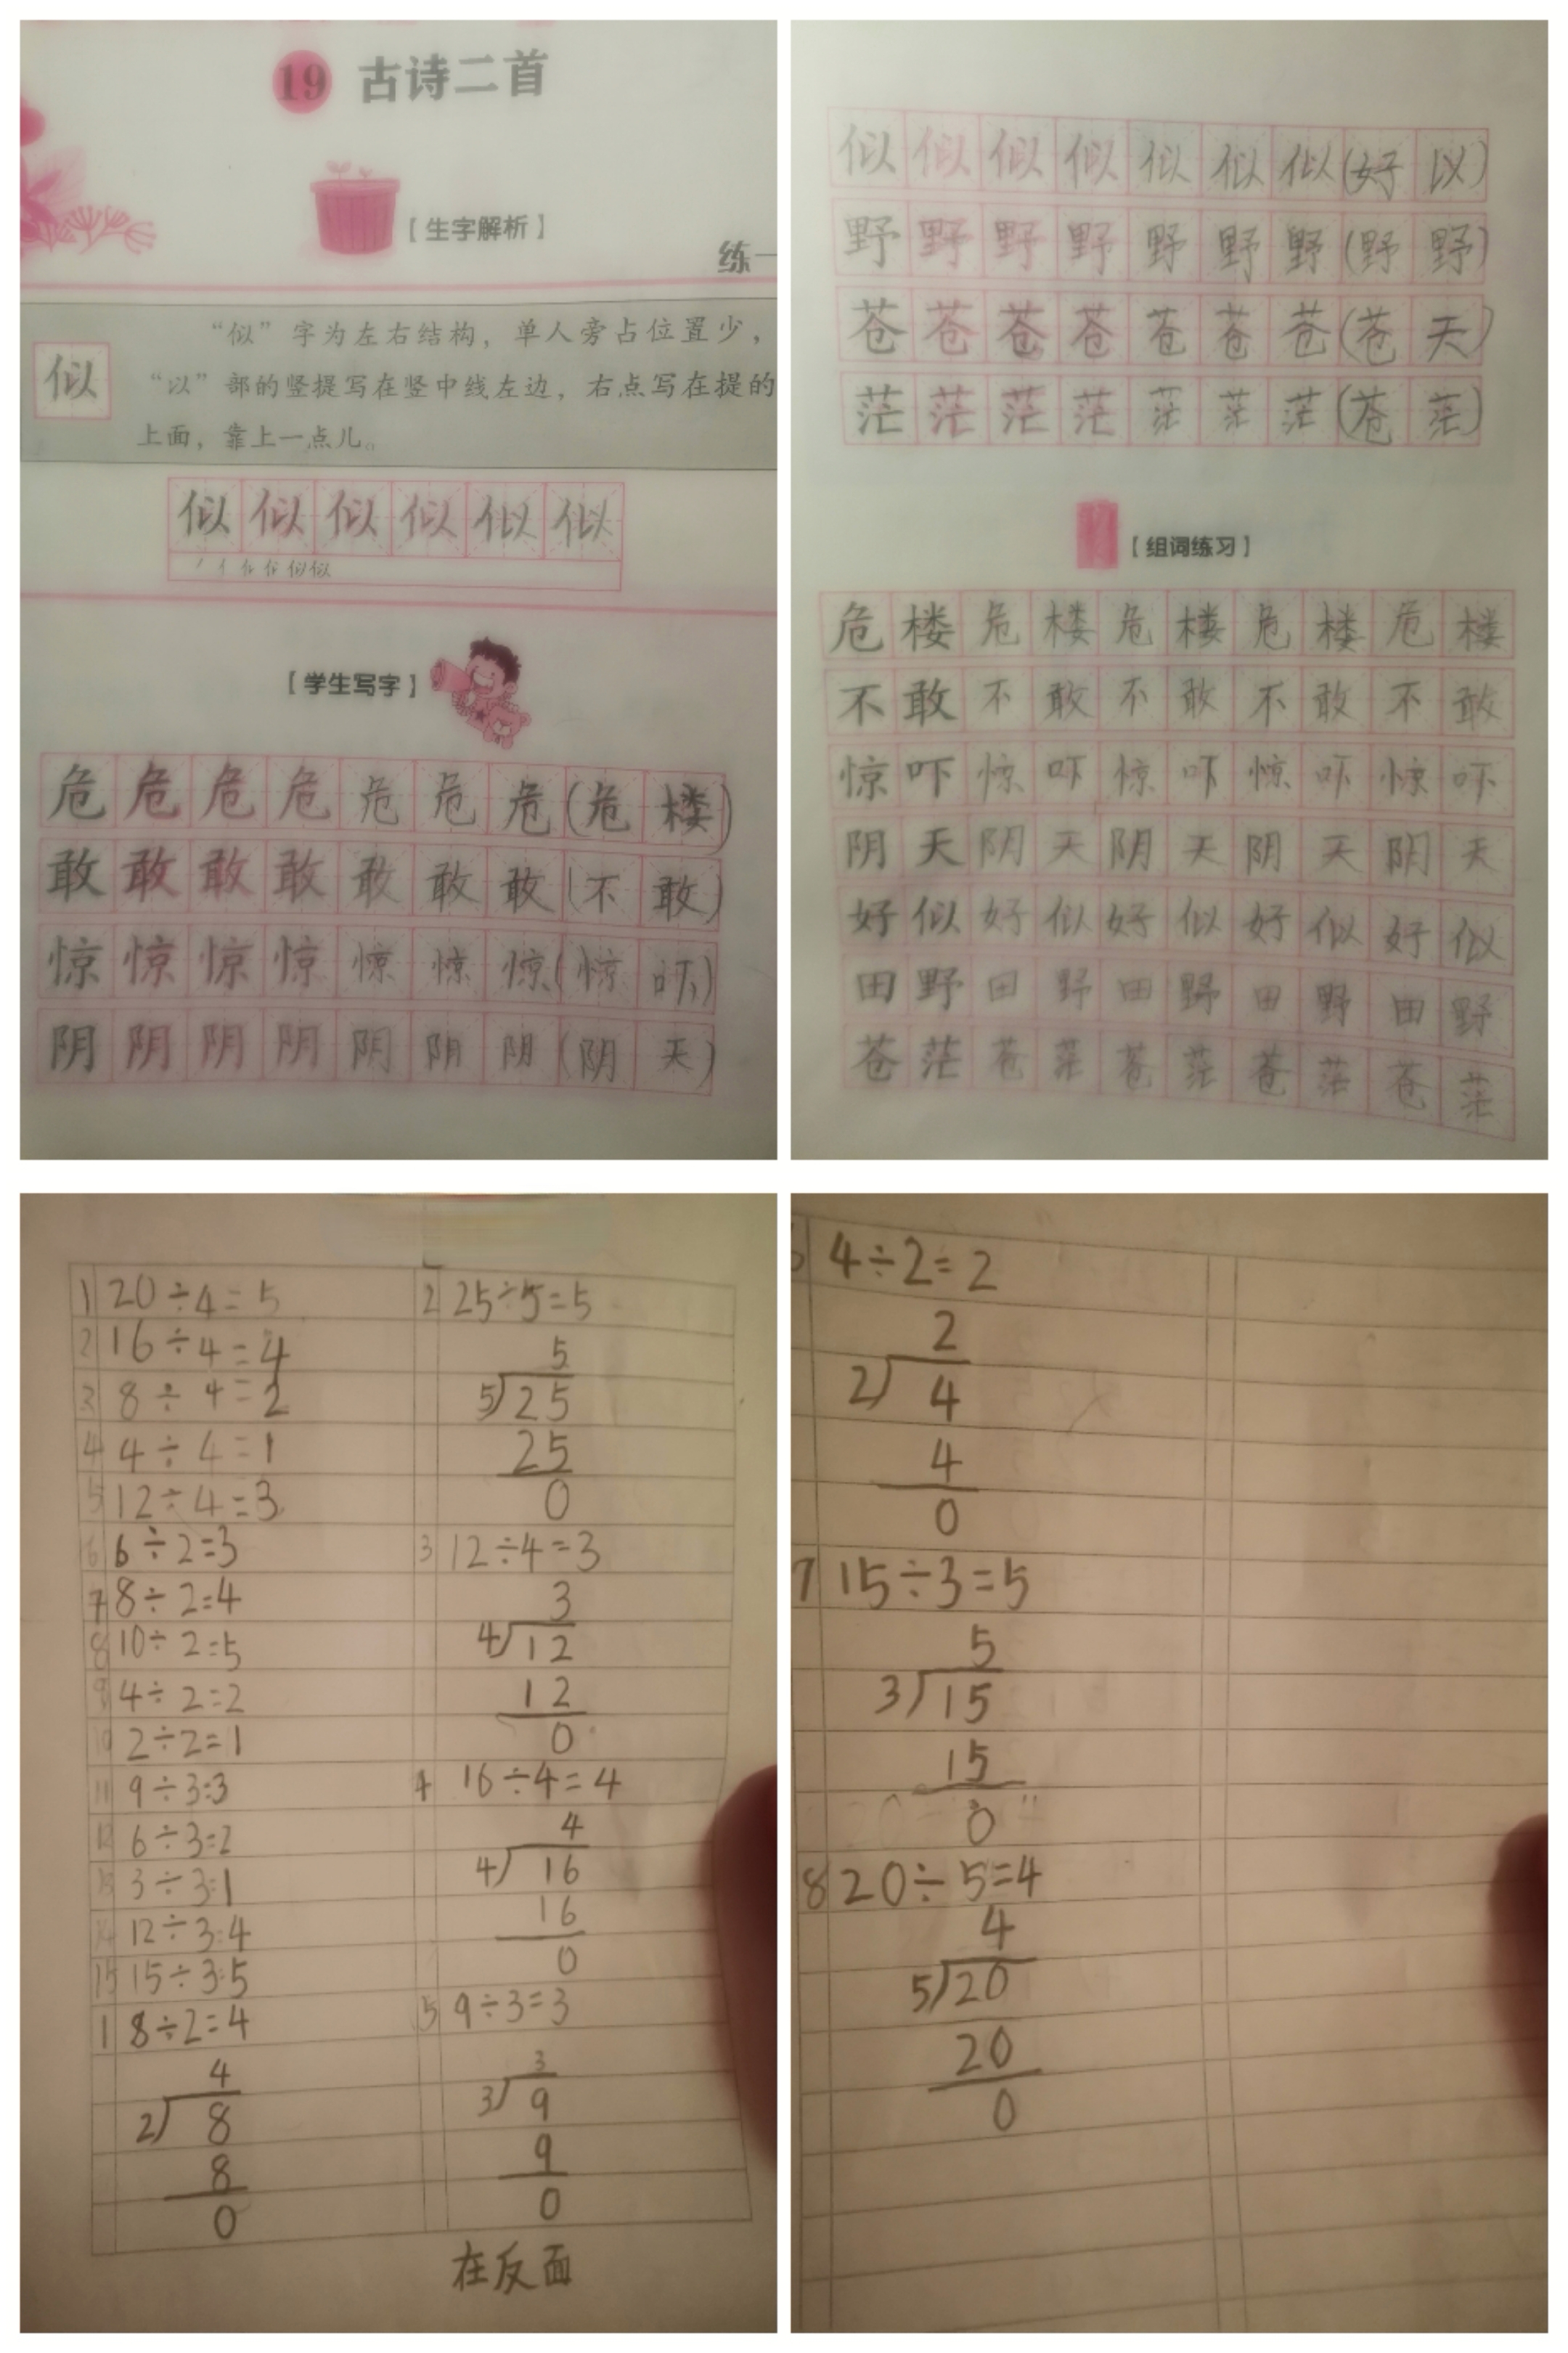 19 古诗二首
【生字解析】
练一
似
“似”字为左右结构，单人旁占位置少，
“以”部的竖提写在竖中线左边，右点写在提的
上面，靠上一点儿。
似似似似似似
【学生写字】
危危危危危危危(危楼)
敢敢敢敢敢敢敢(不敢)
惊惊惊惊惊惊惊(惊吓)
阴阴阴阴阴阴阴(阴天)
似似似似似似似(好以)
野野野野野野野(野野)
苍苍苍苍苍苍苍(苍天)
茫茫茫茫茫茫茫(苍茫)
【组词练习】
危楼危楼危楼危楼危楼
不敢不敢不敢不敢不敢
惊吓惊吓惊吓惊吓惊吓
阴天阴天阴天阴天阴天
好似好似好似好似好似
田野田野田野田野田野
苍茫苍茫苍茫苍茫苍茫
1 20÷4=5
2 16÷4=4
3 8÷4=2
4 4÷4=1
5 12÷4=3
6 6÷2=3
7 8÷2=4
8 10÷2=5
9 4÷2=2
10 2÷2=1
11 9÷3=3
12 6÷3=2
13 3÷3=1
14 12÷3=4
15 15÷3=5
1 8÷2=4
4
2)8
8
0
2 25÷5=5
5
5)25
25
0
3 12÷4=3
3
4)12
12
0
4 16÷4=4
4
4)16
16
0
5 9÷3=3
3
3)9
9
0
在反面
4÷2=2
2
2)4
4
0
7 15÷3=5
5
3)15
15
0
8 20÷5=4
4
5)20
20
0